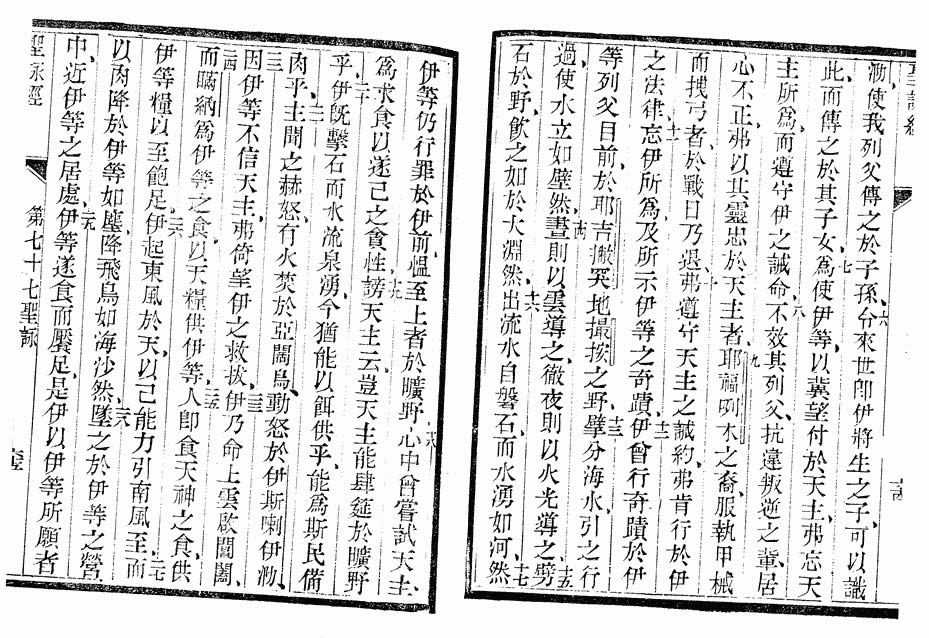 聖詠經
泐、使我列父傳之於子孫、六台來世卽伊將生之子、可以識
此、而傳之於其子女、七爲使伊等、以冀望付於天主、弗忘天
主所爲、而遵守伊之誡命、八不效其列父、抗違叛逆之輩、居
心不正、弗以其靈忠於天主者、九耶福咧木之裔、服執甲械
而㧞弓者、於戰日乃退、十弗遵守天主之誡約、弗肯行於伊
之法律、十一忘伊所爲、及所示伊等之奇蹟、十二伊曾行奇蹟於伊
等列父目前、於耶吉撇突地、撮按之野、十三擘分海水、引之行
過、使水立如壁然、十四晝則以雲導之、徹夜則以火光導之、十五劈
石於野、飲之如於大淵然、十六出流水自磐石、而水湧如河然、十七
伊等仍行罪於伊前、慍至上者於曠野、十八心中曾嘗試天主、
爲求食以遂己之貪性、十九謗天主云、豈天主能肆筵於曠野
乎、二十伊旣擊石而水流泉湧、今猶能以餌供乎、能爲斯民備
肉乎、二一主聞之赫怒、有火焚於亞闊烏、動怒於伊斯喇伊泐、
二二因伊等不信天主、弗倚望伊之救拔、二三伊乃命上雲啟闔闥、
二四而瞞納爲伊等之食、以天糧供伊等、二五人卽食天神之食、供
伊等糧以至飽足、二六伊起東風於天、以己能力引南風至、二七而
以肉降於伊等如塵、降飛鳥如海沙然、二八墜之於伊等之營
中、近伊等之居處、二九伊等遂食而饜足、是伊以伊等所願者
聖詠經
第七十七聖詠